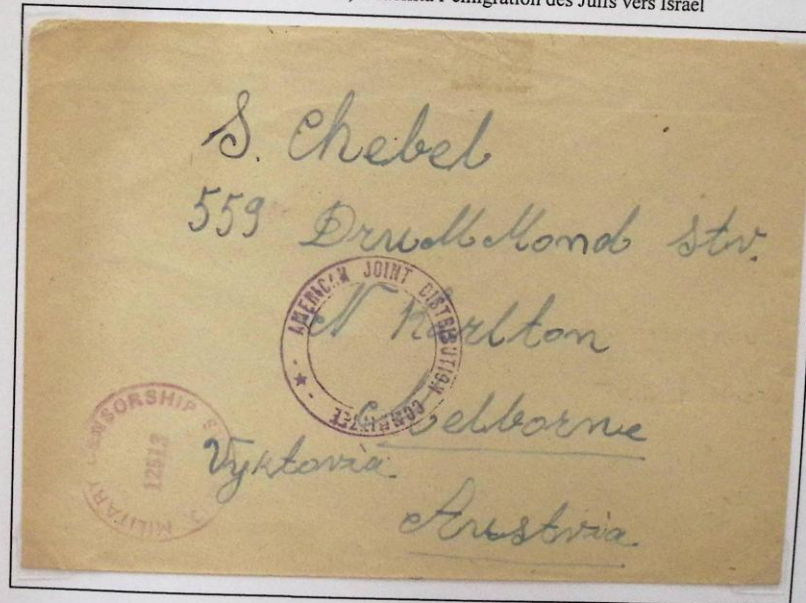 l'émigration des Juifs vers Israël
S. Chebel
559 DruMMond str.
N Karlton
Melborne
Vyktovia
Austria
AMERICAN JOINT DISTRIBUTION COMMITTEE
MILITARY CENSORSHIP
12513